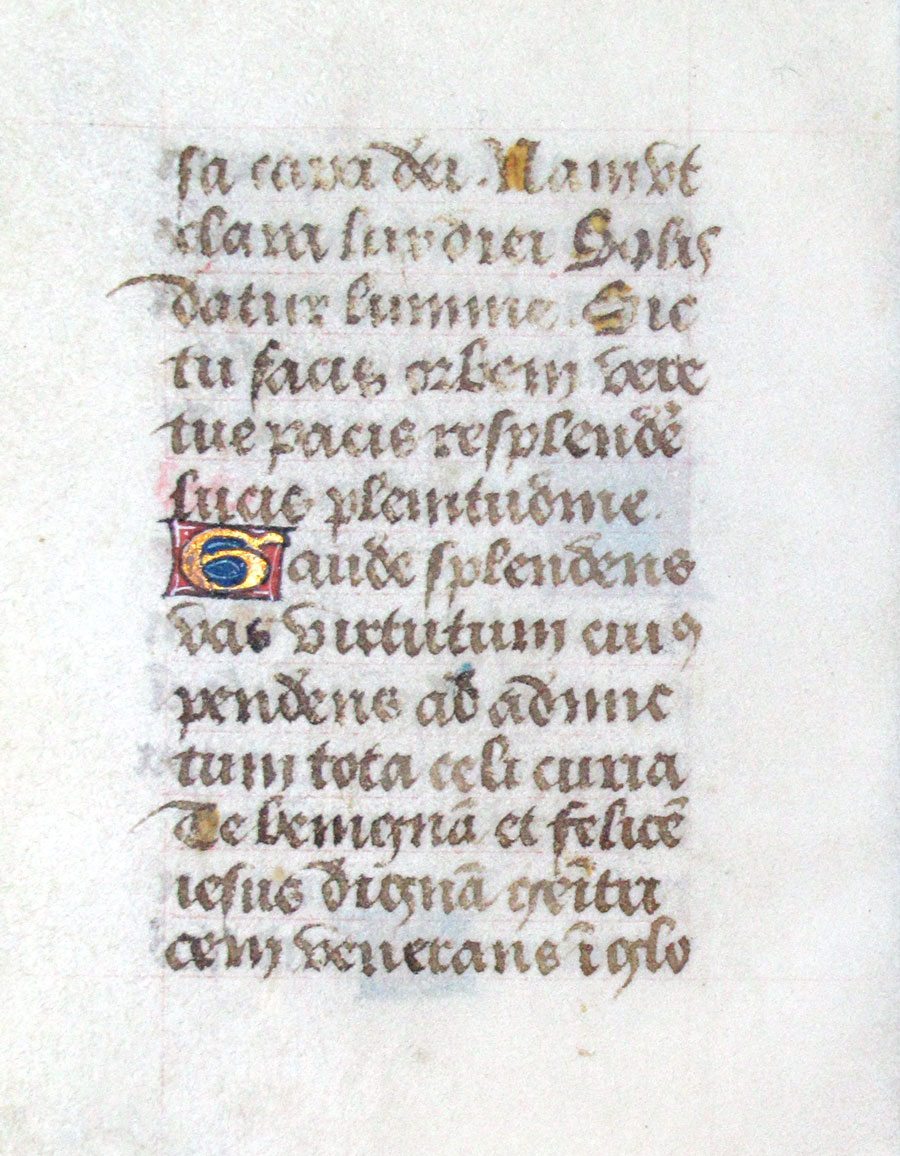 sa cara dei. Nam vt
clara lux diei Solis
datur lumine. Sic
tu facis orbem vere
tue pacis resplendē
lucis plenitudine.
Gaude splendens
vas virtutum cuiꝯ
pendens ad ad nuc
tum tota celi curia
Te benignā et felicē
iesus dignā geīta
cem venerans ī glo